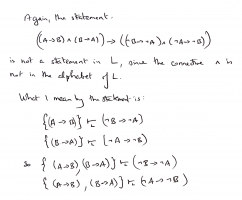 Again, the statement.
((A→B) ∧ (B→A)) → ((¬B→¬A) ∧ (¬A→¬B))
is not a statement in L, since the connective ∧ is
not in the alphabet of L.
What I mean by the statement is:
{(A→B)} ⊢ (¬B→¬A)
{(B→A)} ⊢ (¬A→¬B)
so { (A→B), (B→A)} ⊢ (¬B→¬A)
{ (A→B), (B→A)} ⊢ (¬A→¬B)